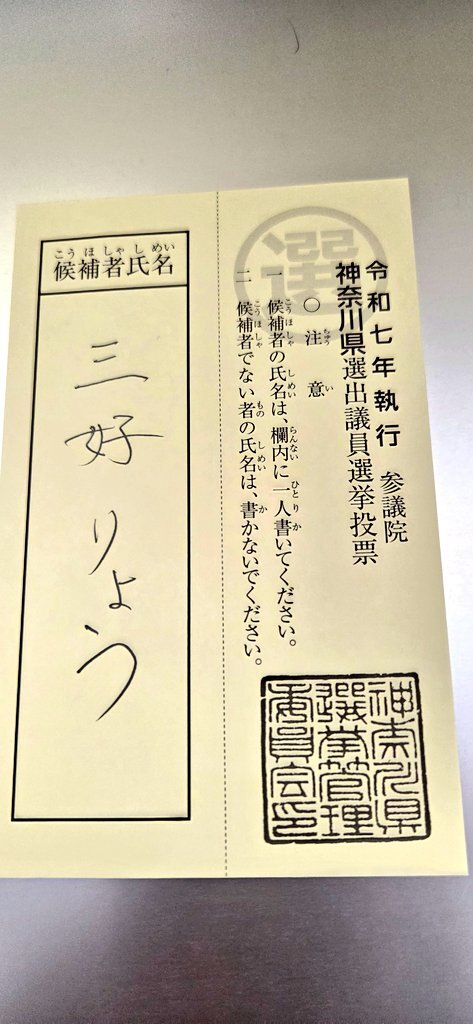 令和七年執行 参議院
神奈川県選出議員選挙投票
選
ちゅう い
○注意
こうほしゃ しめい らんない ひとり か
一 候補者の氏名は、欄内に一人書いてください。
こうほしゃ もの しめい か
二 候補者でない者の氏名は、書かないでください。
神奈川県
選挙管理
委員会印
こうほしゃしめい
候補者氏名
三好りょう